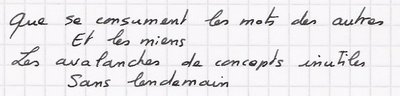 Que se consument les mots des autres
Et les miens
Les avalanches de concepts inutiles
Sans lendemain